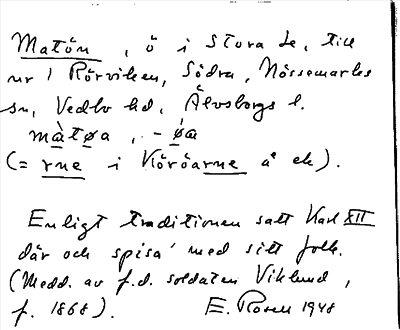 Matön, ö i Stora Le, till
nr 1 Rörviken, Södra, Nössemarks
sn, Vedbo hd, Älvsborgs l.
màtøa, -øa
(= rne i Köröarne å ek).
Enligt traditionen satt Karl XII
där och spisa' med sitt folk.
(Medd. av f.d. soldaten Viklund,
f. 1868). E. Rosen 1948